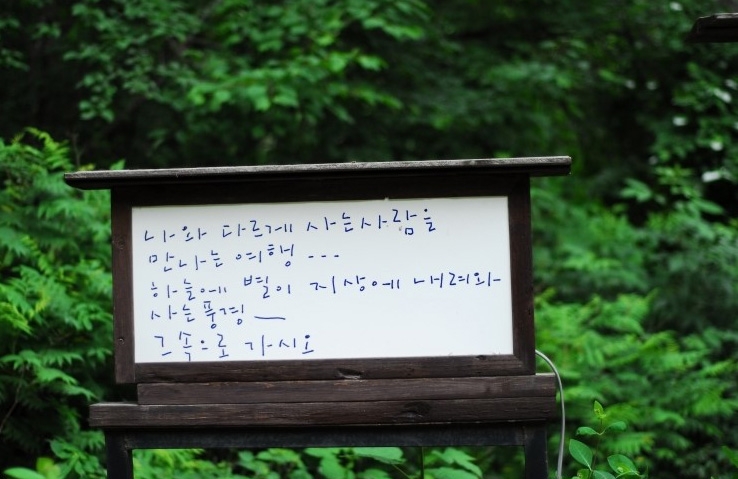 나와 다르게 사는 사람들
만나는 여행 ...
하늘에 별이 지상에 내려와
사는 풍경 —
그 속으로 가시오